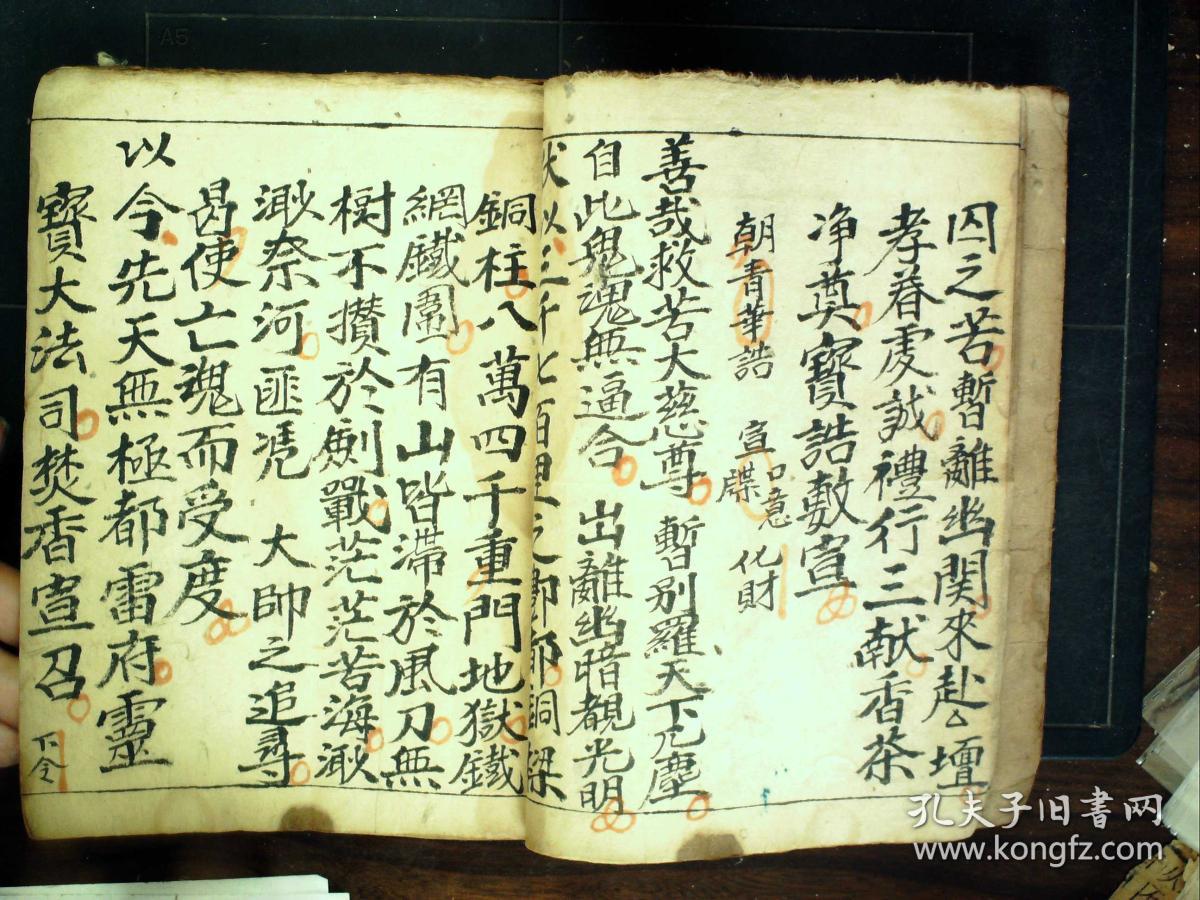 囚之苦暫離幽関來赴△壇
孝眷虔誠禮行三献香茶
净奠寳誥敷宣
朝青華誥 宣牒 口意 化財
善哉救苦大慈尊 暫别羅天下凡塵
自此鬼魂無逼合 出離幽暗覩光明
伏以三千七百里之酆都銅梁
銅柱八萬四千重門地獄鐵
網鐵圍有山皆滞於風刀無
樹不攢於劍戟茫茫苦海渺
渺奈河匪凴 大帥之追尋
曷使亡魂而受度
以今先天無極都雷府靈
寳大法司焚香宣召 下令
孔夫子旧書网
www.kongfz.com
A5